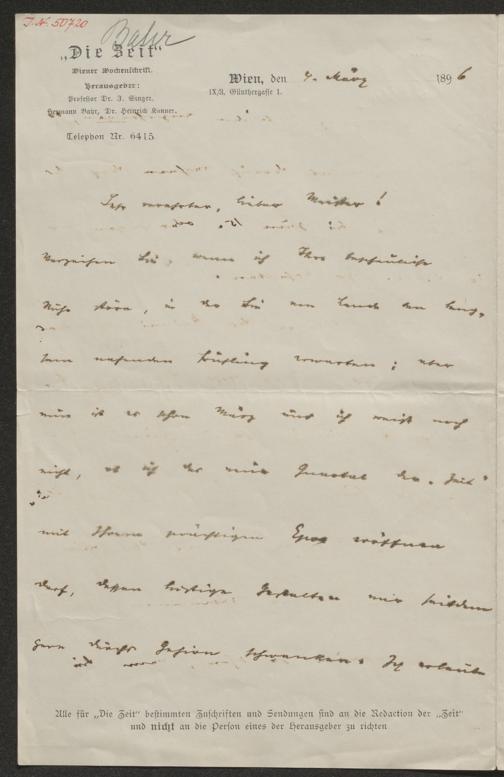 I.N. 50720
Bahr
„Die Zeit“
Wiener Wochenschrift.
Herausgeber:
Professor Dr. I. Singer,
Hermann Bahr, Dr. Heinrich Kanner.
Telephon Nr. 6415.
Wien, den 4. März 1896
IX/3, Günthergasse 1.
Sehr verehrter, lieber Meister!
Verzeihen Sie, wenn ich Ihre beschauliche
Ruhe störe, in der Sie am Lande den lang-
sam nahenden Frühling erwarten; aber
nun ist es schon März und ich weiß noch
nicht, ob ich das neue Quartal der „Zeit“
mit Ihrem prächtigen Epos eröffnen
darf, dessen lustige Gestalten mir seitdem
gern durchs Gehirn schwanken. Ich erlaube
Alle für „Die Zeit“ bestimmten Zuschriften und Sendungen sind an die Redaction der „Zeit“
und nicht an die Person eines der Herausgeber zu richten